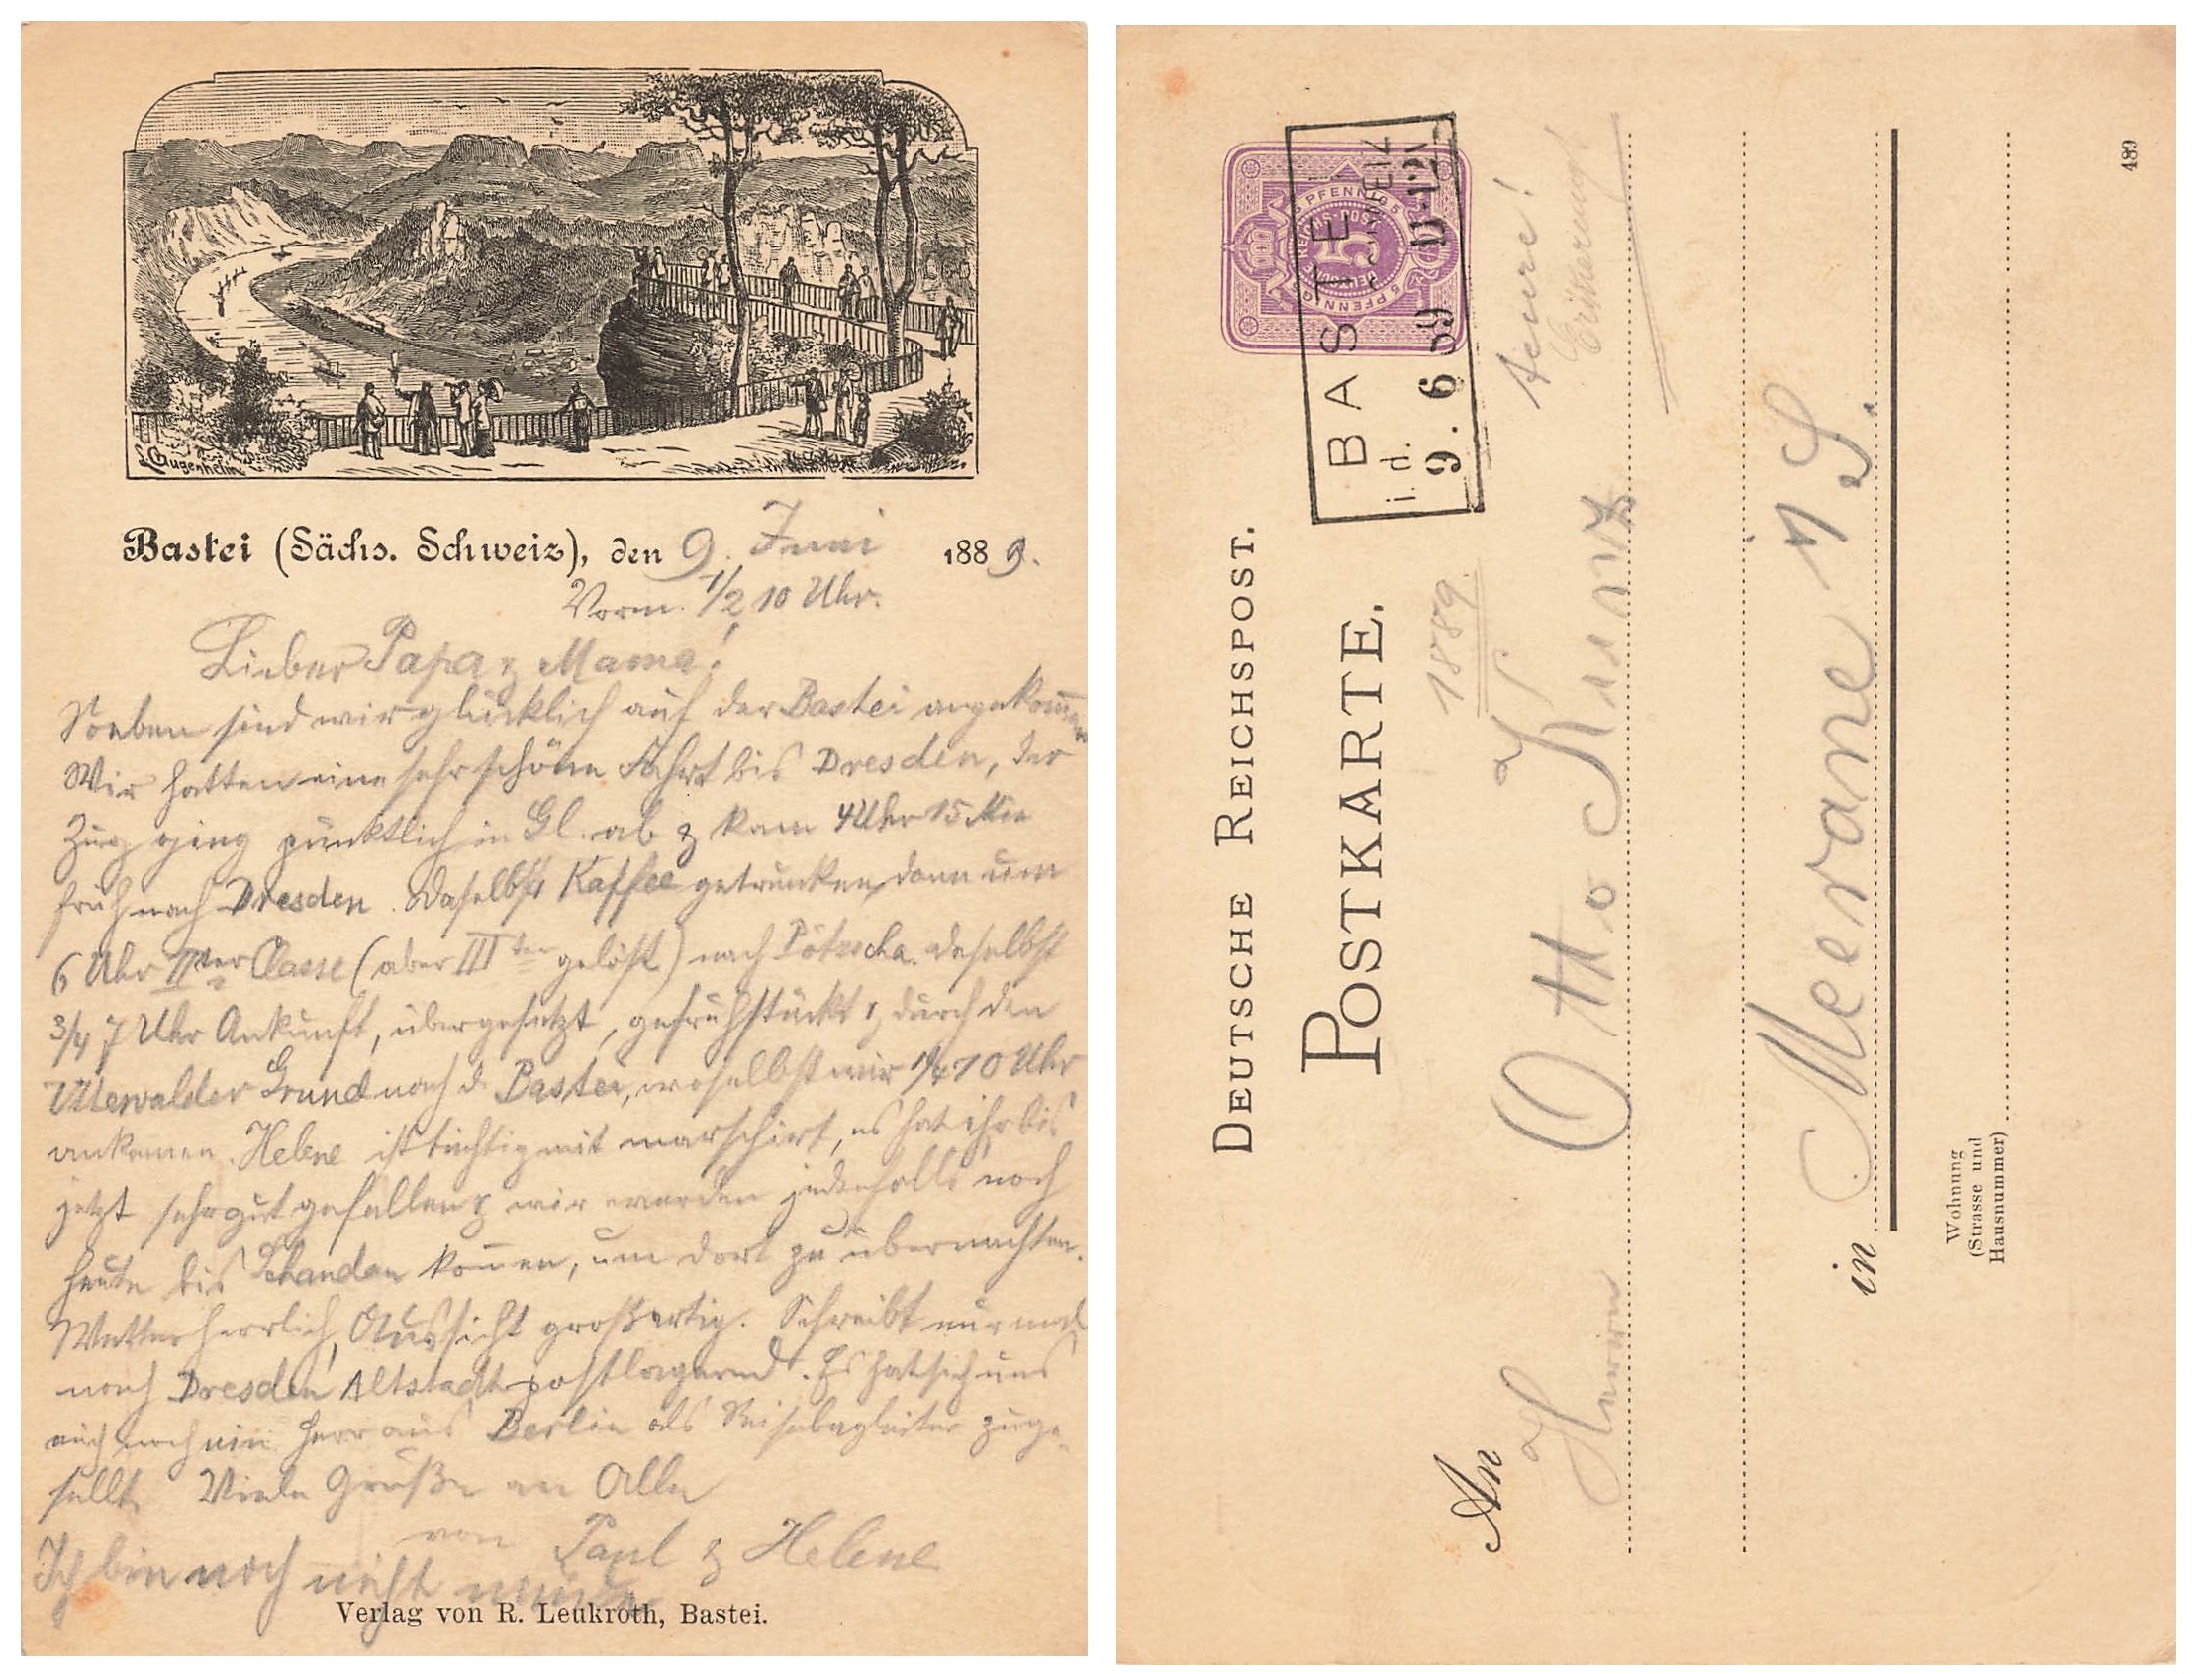 L. Gugenheim
Bastei (Sächs. Schweiz), den 9. Juni 1889.
Vorm. 1/2 10 Uhr.
Lieber Papa & Mama!
Soeben sind wir glücklich auf der Bastei angekom̅en
Wir hatten eine sehr schöne Fahrt bis Dresden, der
Zug ging pünktlich in Gl. ab & kam 4 Uhr 15 Min
früh nach Dresden. Daselbst Kaffee getrunken, dann um
6 Uhr IIter Classe (aber IIIter gelöst) nach Pötzscha. daselbst
3/4 7 Uhr Ankunft, übergesetzt, gefrühstückt & durch den
Uttewalder Grund nach d. Bastei, woselbst wir 1/4 10 Uhr
ankamen. Helene ist tüchtig mit marschirt, es hat ihr bis
jetzt sehr gut gefallen & wir werden jedenfalls noch
heute bis Schandau kom̅en, um dort zu übernachten.
Wetter herrlich, Aussicht großartig. Schreibt nur mal
nach Dresden Altstadt postlagernd. Es hat sich uns
auch noch ein Herr aus Berlin als Reisebegleiter zuge-
sellt. Viele Grüße an Alle
von Paul & Helene
Ich bin noch nicht müde
Verlag von R. Leukroth, Bastei.
DEUTSCHE REICHSPOST.
POSTKARTE.
5 PFENNIG 5
5 PFENNIG 5
DEUTSCHE REICHS-POST
5
BASTEI
i. d. SCHWEIZ
9. 6 89 11-12V
teure!
Erinnerung!
1889.
An Herrn Otto Kuntz
in Meerane i/S.
Wohnung
(Strasse und
Hausnummer)
489